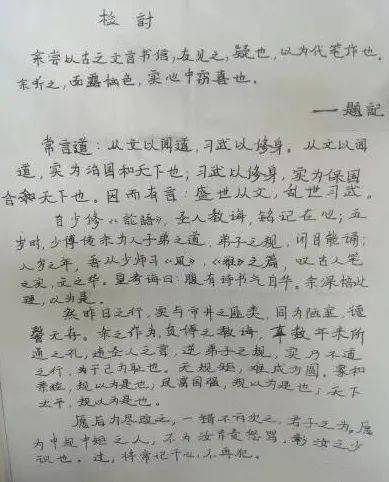 检讨
余尝以古之文言书信,友见之,疑也,以为代笔作也.
余听之,面露愠色,实心中窃喜也.
——题記
常言道:从文以闻道,习武以修身。从文以闻
道,实为治国和天下也;习武以修身,实为保国
合和天下也。因而有言:盛世从文,乱世习武。
自少修《论語》,圣人教诲,铭记在心;五
岁时,少傅传余为人子弟之道,弟子之规,闭目能诵;
八岁之年,吾从少师习《风》,《雅》之篇,叹古人笔
之实,文之华。皇考诲曰:腹有诗书气自华。余深揞此
理,以为是。
然昨日之行,实与市井之座类,同为陋室,德
馨无存。余之作为,负傅之教诲,辜数年来所
通之礼,违圣人之言,逆弟子之规,实乃不道
之行,为于己为耻也。无规矩,难成方圆。家和
亲睦,规以为是也,民富国强,规以为是也;天下
太平,规以为是也。
尽右力尽控之,一错不再次之,君子之为。
为中规中矩之人,不为汝斥责怒骂,彰汝之少
识也。过,将常记于心,不再犯。